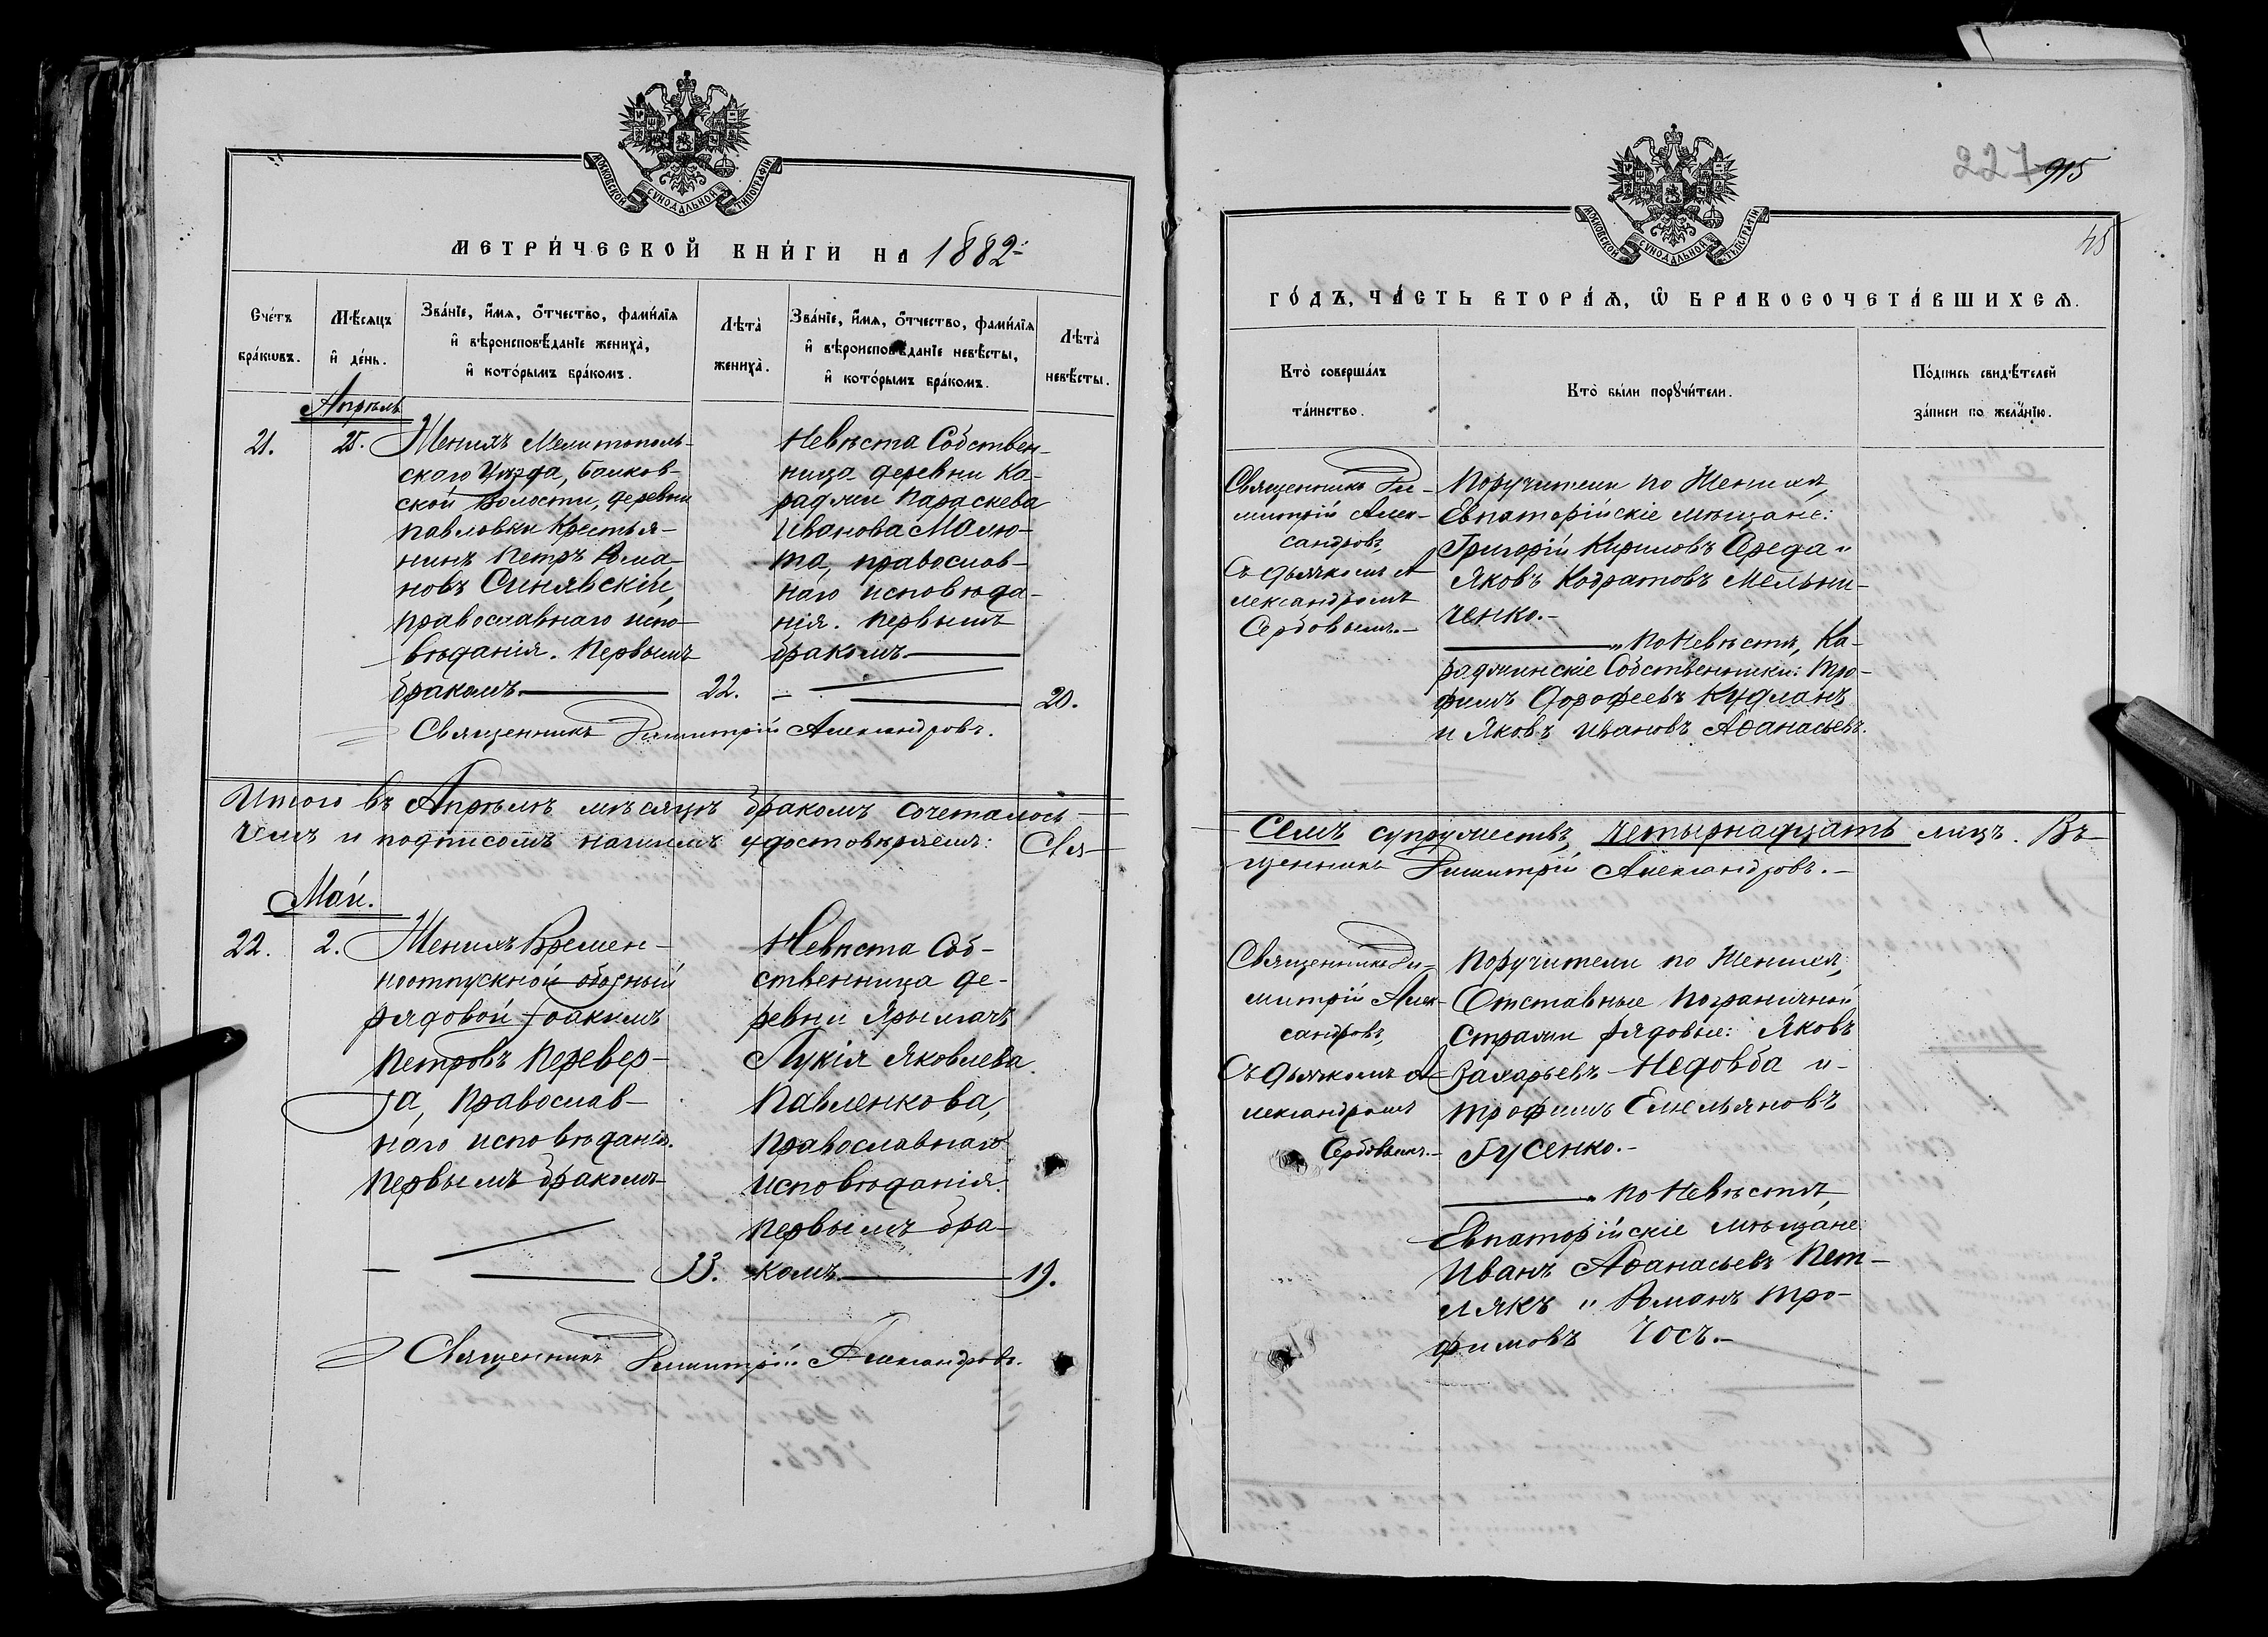 МОСКОВСКОЙ СѴНОДАЛЬНОЙ ТИПОГРАФІИ
МЕТРИ́ЧЕСКОЙ КНИ́ГИ НА 1882.
Сче́тъ бра́кѡвъ.
Мѣ́сяцъ и҆ де́нь.
Зва́нїе, и҆́мѧ, ѻ҆́тчество, фами́лїѧ
и҆ вѣроисповѣ́данїе жениха̀,
и҆ кото́рымъ бра́комъ.
Лѣта̀ жениха̀.
Зва́нїе, и҆́мѧ, ѻ҆́тчество, фами́лїѧ
и҆ вѣроисповѣ́данїе невѣ́сты,
и҆ кото́рымъ бра́комъ.
Лѣта̀ невѣ́сты.
Апрѣль
21.
25.
Женихъ Мелитополь-
скаго Уѣзда, Балков-
ской Волости, деревни
Павловки Крестья-
нинъ Петръ Рома-
новъ Синявскій,
православнаго испо-
вѣданія. Первымъ
бракомъ.
22.
Невѣста Собствен-
ница деревни Ка-
раджи Параскева
Иванова Малю-
та, православ-
наго исповѣда-
нія. Первымъ
бракомъ
20.
Священникъ Димитрій Александровъ.
Итого въ Апрѣлѣ мѣсяцѣ бракомъ сочеталось
чемъ и подписомъ нашимъ удостовѣряемъ: Свя-
Май.
22.
2.
Женихъ Времен-
ноотпускной
рядовой Іоакимъ
Петровъ Перевер-
за, Православ-
наго исповѣданія.
Первымъ бракомъ
33.
Невѣста Соб-
ственница де-
ревни Ярылгачъ
Лукія Яковлева
Павленкова,
Православнаго
исповѣданія.
Первымъ бра-
комъ.
19.
Священникъ Димитрій Александровъ.
227 915
45
МОСКОВСКОЙ СѴНОДАЛЬНОЙ ТИПОГРАФІИ
ГО́ДЪ, ЧА́СТЬ ВТОРА́Ѧ, Ѡ҆ БРАКОСОЧЕТА́ВШИХСѦ.
Кто̀ соверша́лъ
та́инство.
Кто̀ бы́ли порꙋчи́тели.
По́дпись свидѣ́телей
за́писи по жела́нїю.
Священникъ Ди-
митрій Алек-
сандровъ,
Съ дьячкомъ А-
лександромъ
Сербовымъ.-
Поручители по Женихѣ,
Евпаторійскіе мѣщане:
Григорій Кириловъ Середа и
Яковъ Кодратовъ Мельни-
ченко.-
„ По Невѣстѣ, Ка-
раджинскіе Собственники: Тро-
фимъ Дорофеевъ Кудланъ
и Яковъ Ивановъ Аѳанасьевъ.
Семь супружествъ, четырнадцать лицъ. Въ
щенникъ Димитрій Александровъ.-
Священникъ Ди-
митрій Алек-
сандровъ,
Съ дьячкомъ А-
лександромъ
Сербовымъ.-
Поручители по Женихѣ,
Отставные Пограничной
Стражи рядовые: Яковъ
Захарьевъ Недовба и-
Трофимъ Емельяновъ
Гусенко.-
„ По Невѣстѣ,
Евпаторійскіе мѣщане:
Иванъ Аѳанасьевъ Пет-
лякъ и Романъ Тро-
фимовъ Чосъ.-